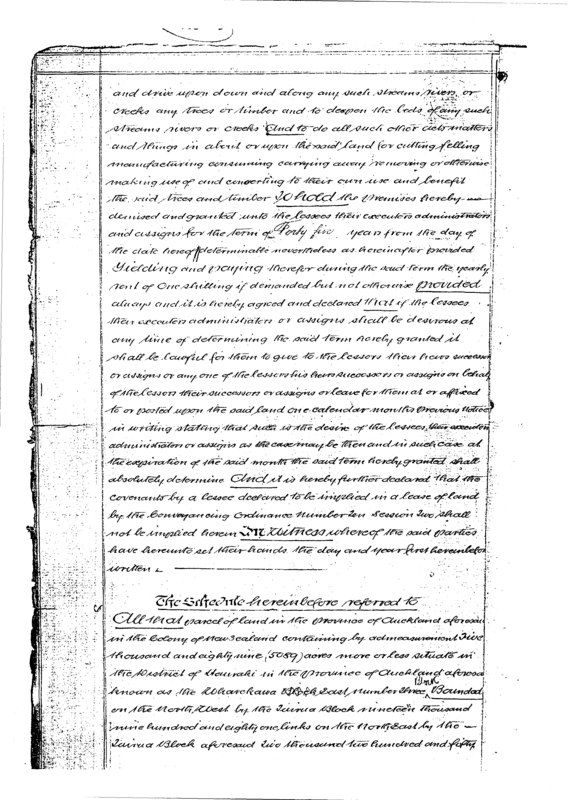 and drive upon down and along any such streams rivers or
creeks any trees or timber and to deepen the beds of any such
streams rivers or creeks And to do all such other acts matters
and things in about or upon the said land for cutting felling
manufacturing consuming carrying away removing or otherwise
making use of and converting to their own use and benefit
the said trees and timber To hold the premises hereby
demised and granted unto the lessees their executors administrators
and assigns for the term of Forty five years from the day of
the date hereof determinable nevertheless as hereinafter provided
Yielding and paying therefor during the said term the yearly
rent of One shilling if demanded but not otherwise provided
always and it is hereby agreed and declared that if the lessees
their executors administrators or assigns shall be desirous at
any time of determining the said term hereby granted it
shall be lawful for them to give to the lessors their heirs successors
or assigns or any one of the lessors his heirs successors or assigns on behalf
of the lessors their successors or assigns or leave for them at or affixed
to or posted upon the said land one calendar months previous notice
in writing stating that such is the desire of the lessees, their executors
administrators or assigns as the case may be then and in such case at
the expiration of the said month the said term hereby granted shall
absolutely determine And it is hereby further declared that the
covenants by a lessee declared to be implied in a lease of land
by the Conveyancing Ordinance Number Ten Session Two shall
not be implied herein In Witness whereof the said parties
have hereunto set their hands the day and year first hereinbefore
written
The Schedule hereinbefore referred to
All that parcel of land in the Province of Auckland aforesaid
in the Colony of New Zealand containing by admeasurement Five
thousand and eighty nine (5089) acres more or less situate in
the District of Hauraki in the Province of Auckland aforesaid
known as the Wharekawa Block East number three Bounded
on the North West by the Tairua Block nineteen thousand
nine hundred and eighty one links on the North East by the
Tairua Block aforesaid Two thousand two hundred and fifty